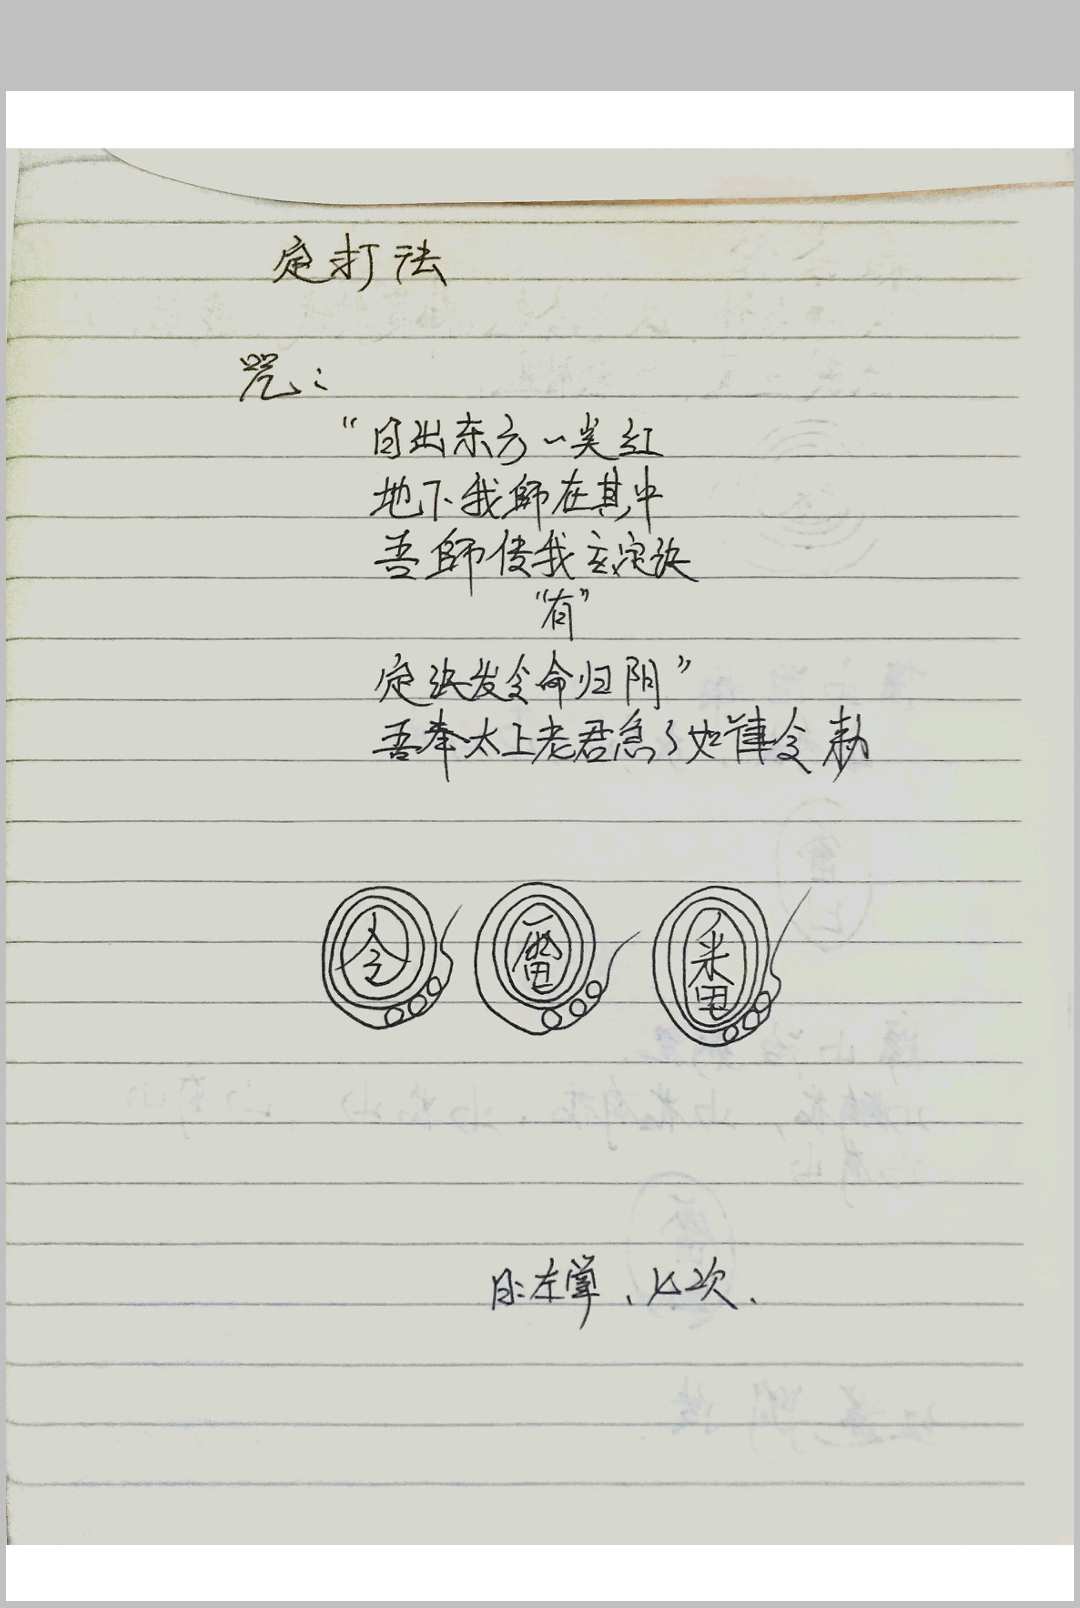 定打法
咒：
“日出东方一光红
地下我師在其中
吾師传我玄定诀
“有”
定诀发令命归阴”
吾奉太上老君急々如律令敕
令 雷 番
左掌、七次.